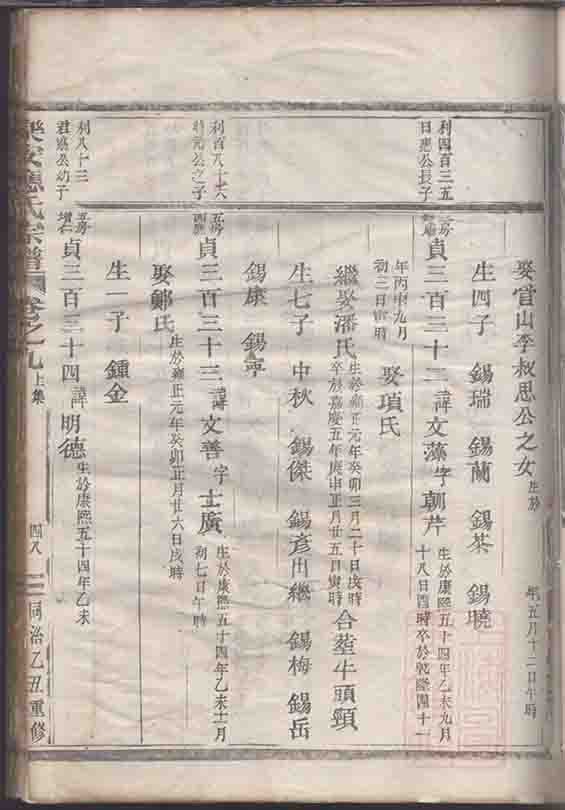 娶官山李叔思公之女 生於 年五月十二日午時
生四子 錫瑞 錫蘭 錫棻 錫曉
利四百三五
日應公長子
貞三百三十二 諱 文藻 字 朝芹 生於康熙五十四年乙未九月
十八日酉時卒於乾隆四十一
年丙申九月
初三日寅時 娶項氏
繼娶潘氏 生於雍正元年癸卯三月二十日戌時
卒於嘉慶五年庚申正月廿五日寅時 合塟牛頭頸
生七子 中秋 錫傑 錫彥出繼 錫梅 錫岳
錫康 錫寧
利百八十六
元公之子
五房
貞三百三十三 諱 文善 字 士廣 生於康熙五十四年乙未十一月
初七日午時
娶鄭氏 生於雍正元年癸卯正月廿六日戌時
生一子 鍾金
利八十三
君 公幼子
五房
貞三百三十四 諱 明德 生於康熙五十四年乙未
樂安 氏宗譜 卷之九 上集 四八 同治乙丑重修